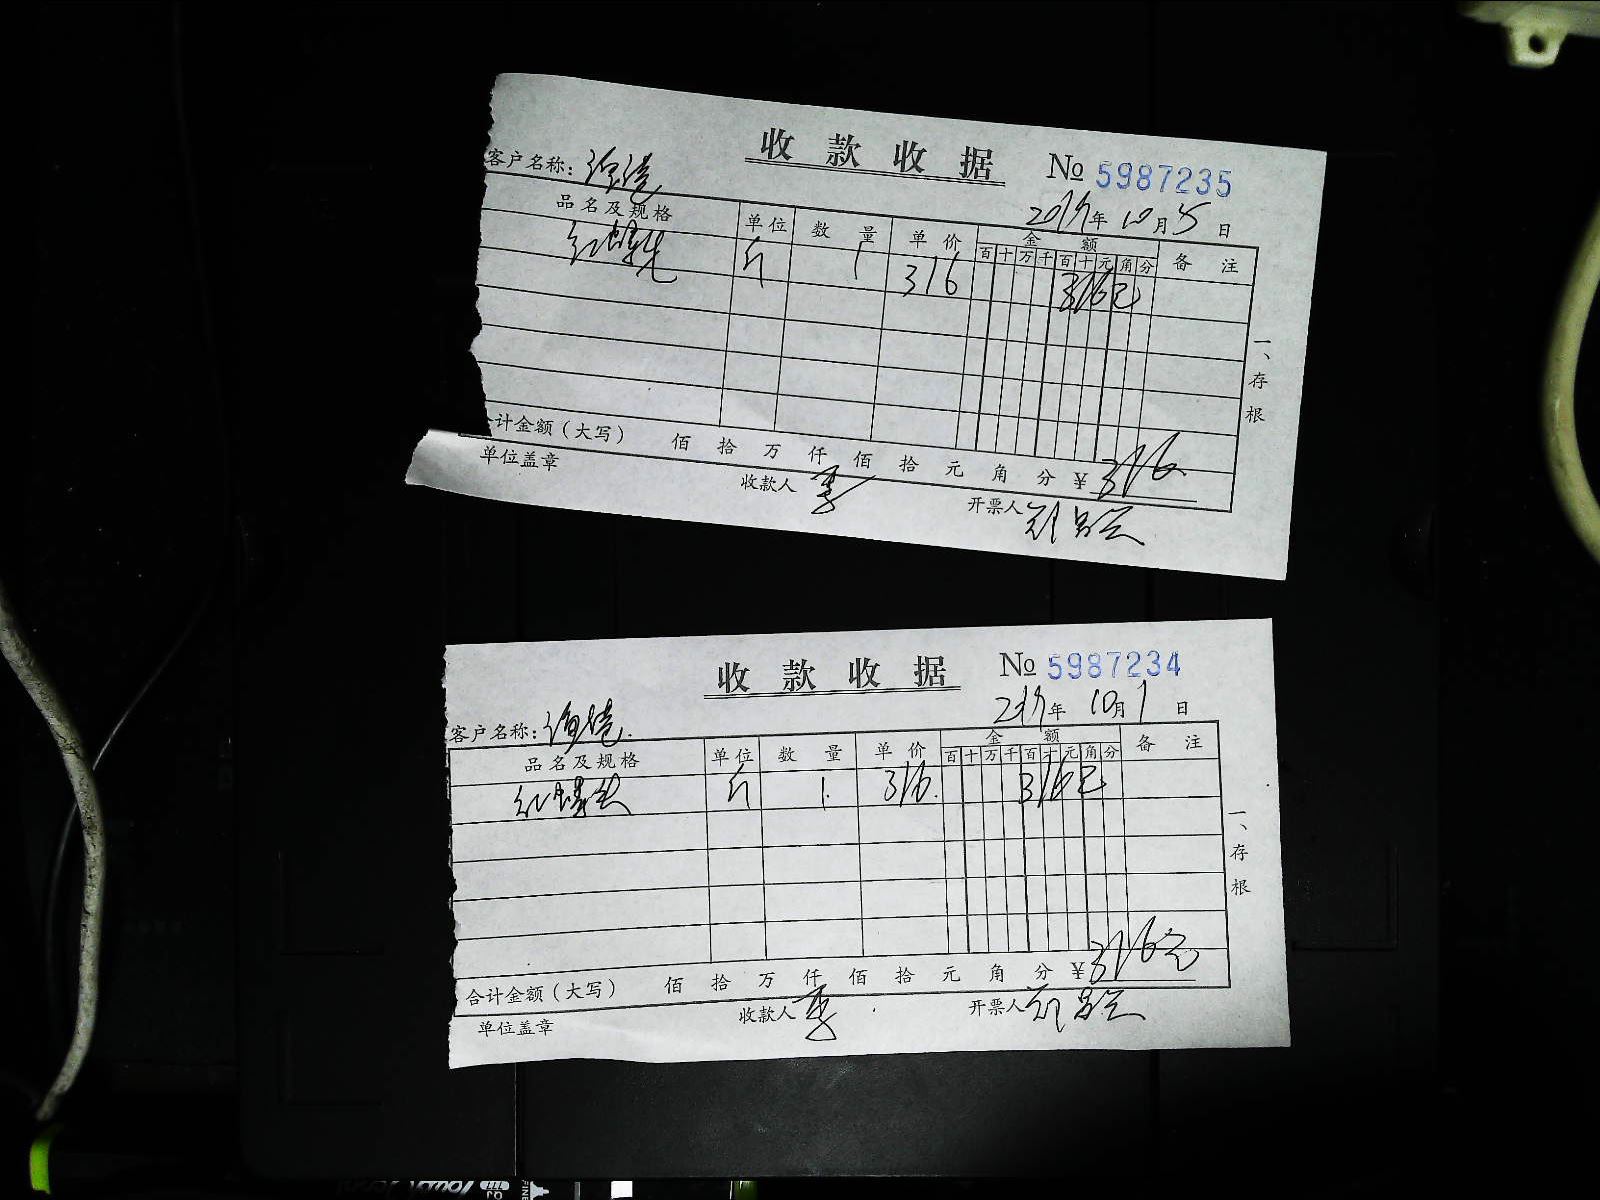 收款收据 № 5987235
客户名称：
年 10月5日
品名及规格 单位 数量 单价 金额 备注
百十万千百十元角分
斤 1 316 316元
一、存根
计金额（大写） 佰 拾 万 仟 佰 拾 元 角 分 ￥316
单位盖章 收款人 李 开票人
收款收据 № 5987234
年 10月1日
客户名称：
品名及规格 单位 数量 单价 金额 备注
百十万千百十元角分
斤 1. 316. 316元
一、存根
合计金额（大写） 佰 拾 万 仟 佰 拾 元 角 分 ￥316元
单位盖章 收款人 李 开票人